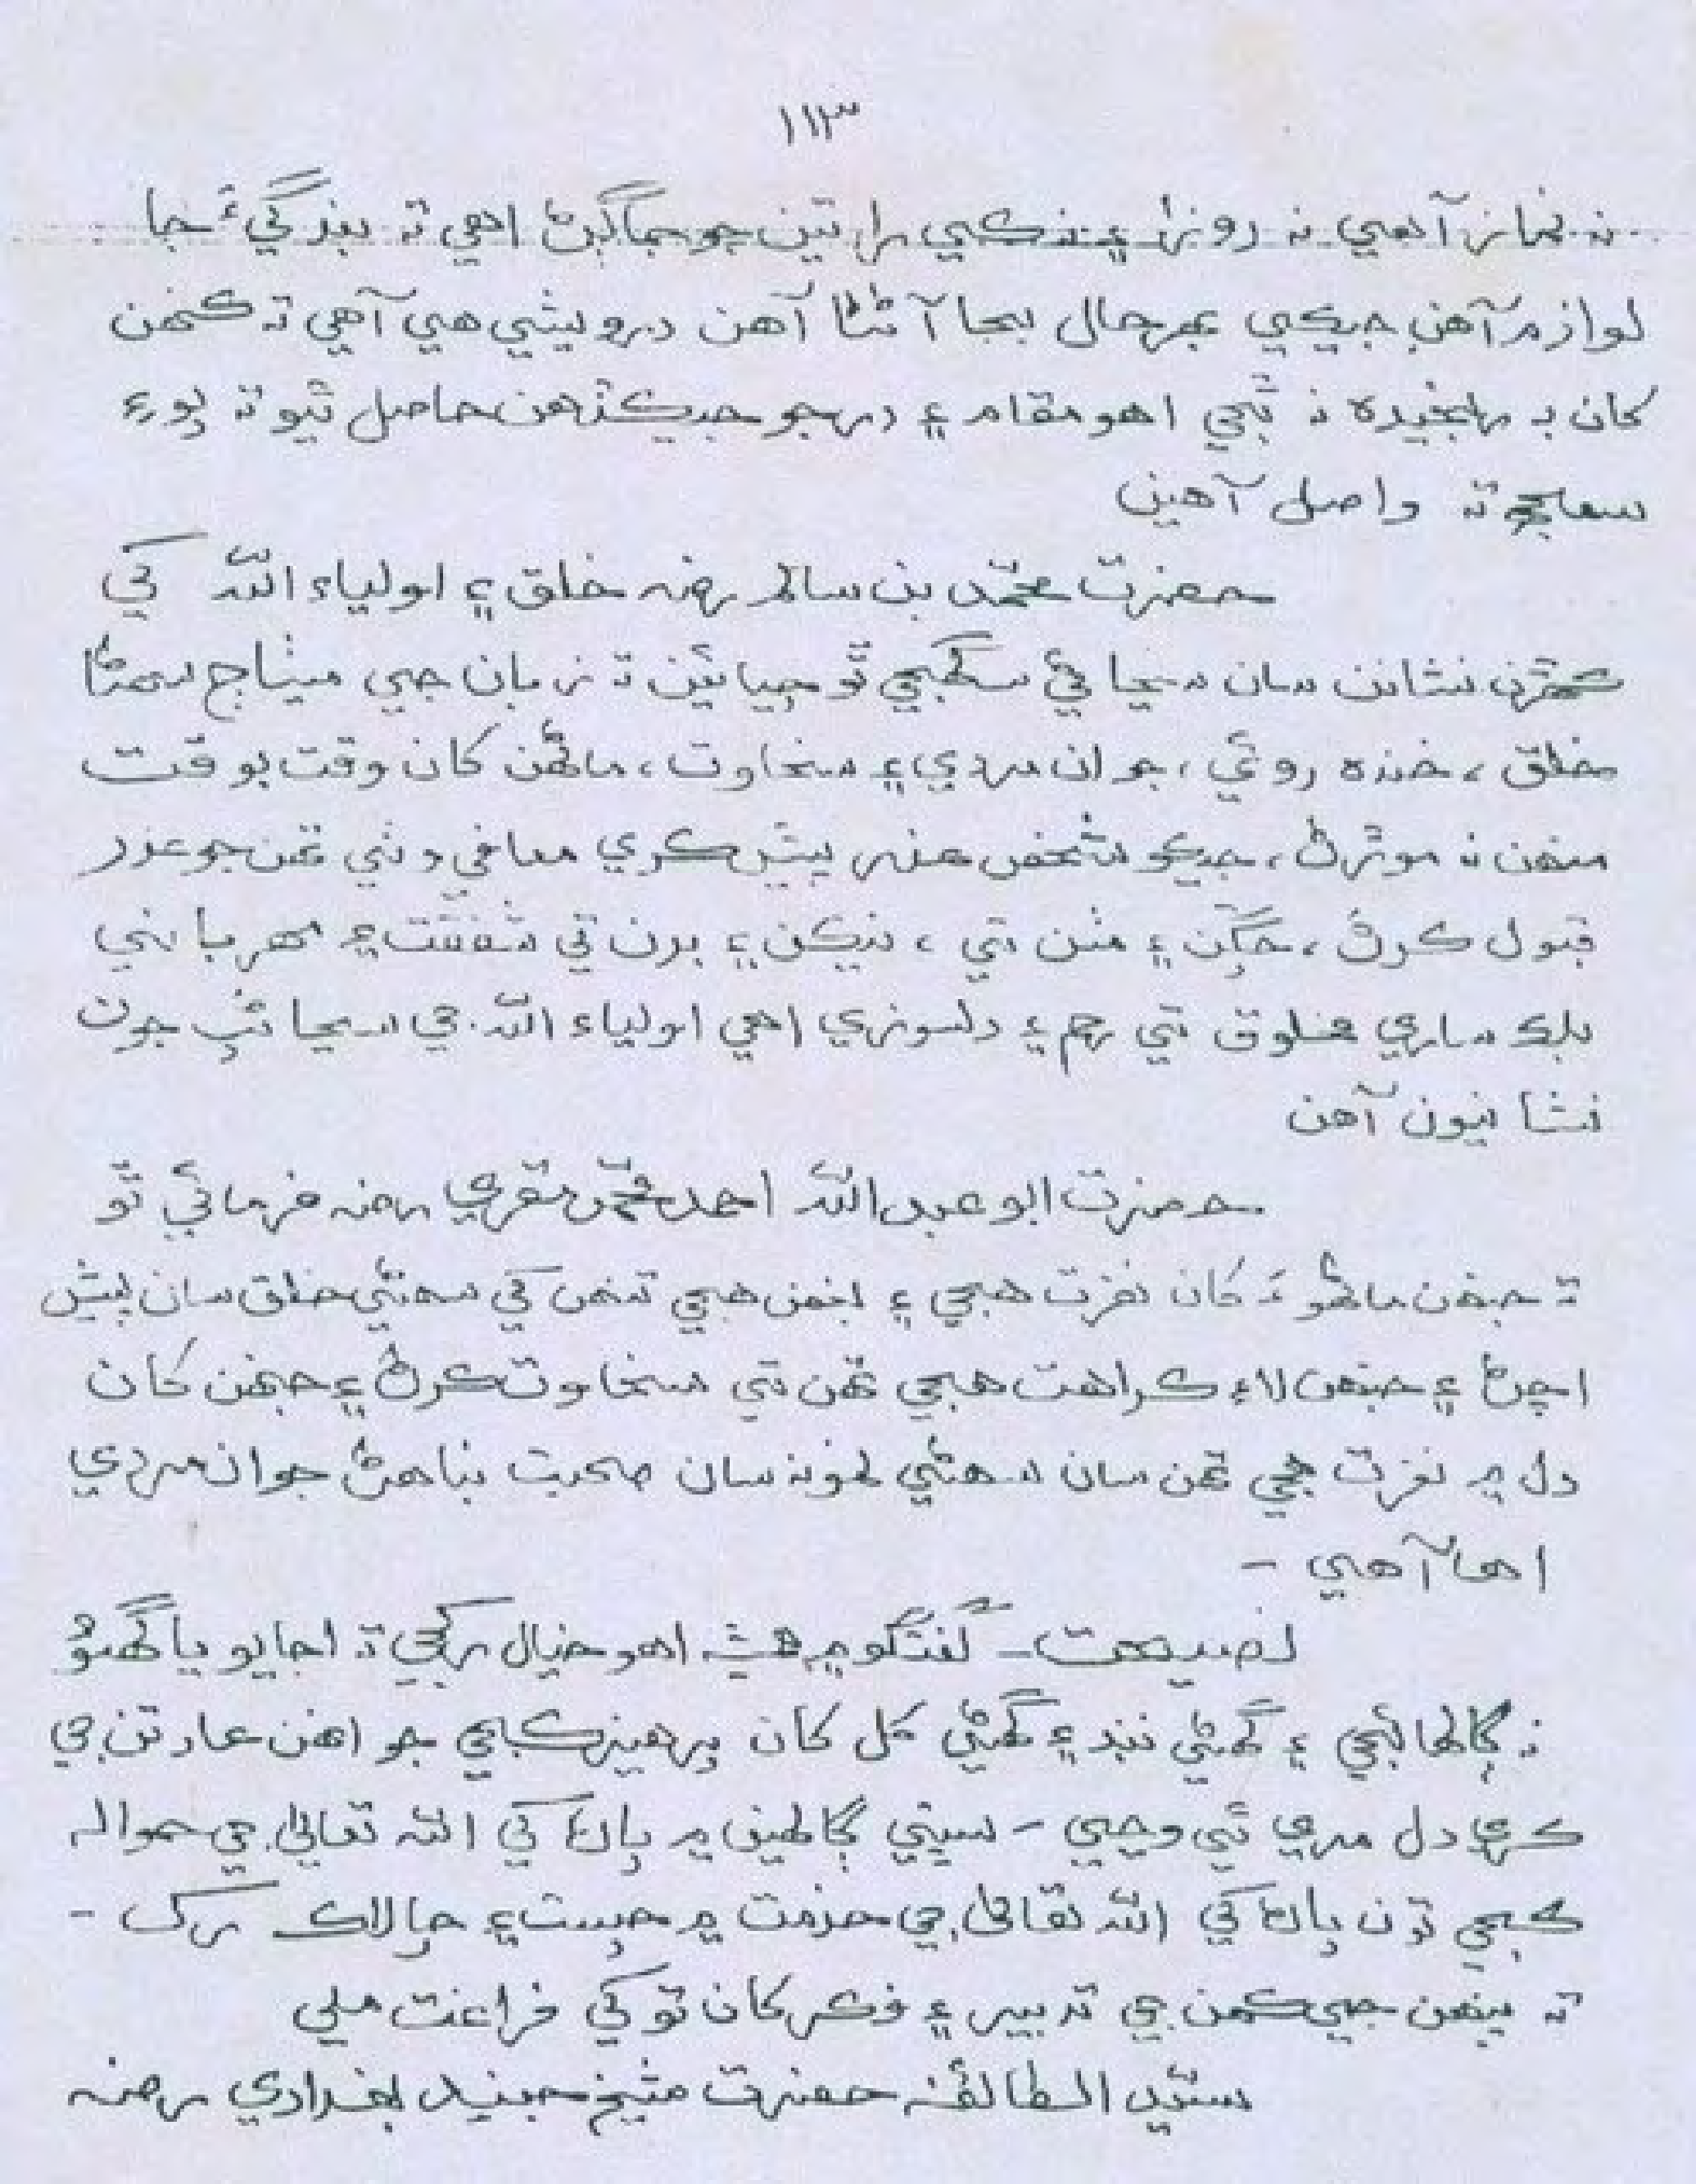 ١١٣
نه نماز آهي نه روزا ۽ نه ڪي را تين جو جاڳڻ اهي ته بندگيءَ جا
لوازم آهن جيڪي بهرحال بجا آڻڻا آهن درويشي هي آهي ته ڪنهن
کان به رنجيده نه ٿجي اهو مقام ۽ درجو جيڪڏهن حاصل ٿيو ته پوءِ
سمجهه ته واصل آهين
حضرت محمّد بن سالم رضه خلق ۽ اولياءَ اللّٰه کي
ڪهڙن نشانن سان سڃاڻي سگهجي ٿو چيائين ته زبان جي مٺاڄ سهڻا
خلق، خنده روئي، جوان مردي ۽ سخاوت، ماڻهن کان وقت بوقت
منهن نه موڙڻ، جيڪو شخص عذر پيش ڪري معافي وٺي تنهن جو عذر
قبول ڪرڻ، چڱن ۽ مٺن تي، نيڪن ۽ برن تي شفقت ۽ مهرباني
بلڪ ساري مخلوق تي رحم ۽ دلسوزي اهي اولياءَ اللّٰه جي سڃاڻپ جون
نشانيون آهن
حضرت ابو عبداللّٰه احمد محمّد مقري رضه فرمائي ٿو
ته جنهن ماڻهوءَ کان نفرت هجي ۽ بغض هجي تنهن کي سهڻي خلق سان پيش
اچڻ ۽ جنهن لاءِ ڪراهت هجي تنهن تي سخاوت ڪرڻ ۽ جنهن کان
دل ۾ نفرت هجي تنهن سان سهڻي نمونه سان صحبت نباهڻ جوانمردي
اها آهي -
نصيحت - گفتگو ۾ هميشه اهو خيال رکجي ته اجايو يا گهڻو
نه ڳالهائجي ۽ گهڻي ننڊ ۽ گهڻي کل کان پرهيز ڪجي جو انهن عادتن جي
ڪري دل مري ٿي وڃي - سڀني ڳالهين ۾ پاڻ کي اللّٰه تعاليٰ جي حوالہ
ڪجي تون پاڻ کي اللّٰه تعاليٰ جي خدمت ۾ چست ۽ چالاڪ رک -
ته پنهنجي ڪمن جي تدبير ۽ فڪر کان توکي فراغت ملي
سيّد الطائفه حضرت شيخ جنيد بغدادي رضه